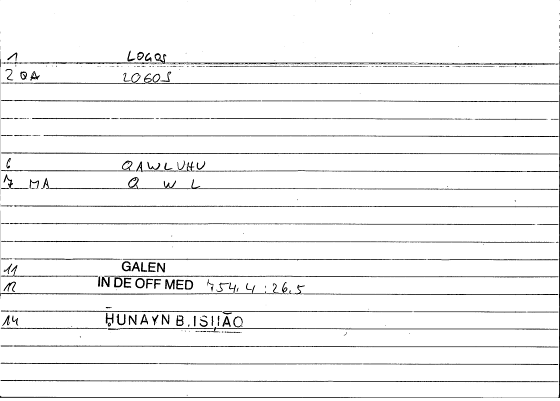 1 LOGOS
2 QA LOGOS
6 QAWLUHU
7 MA Q W L
11 GALEN
12 IN DE OFF MED 754.4:26.5
14 ḤUNAYN B. ISḤĀQ